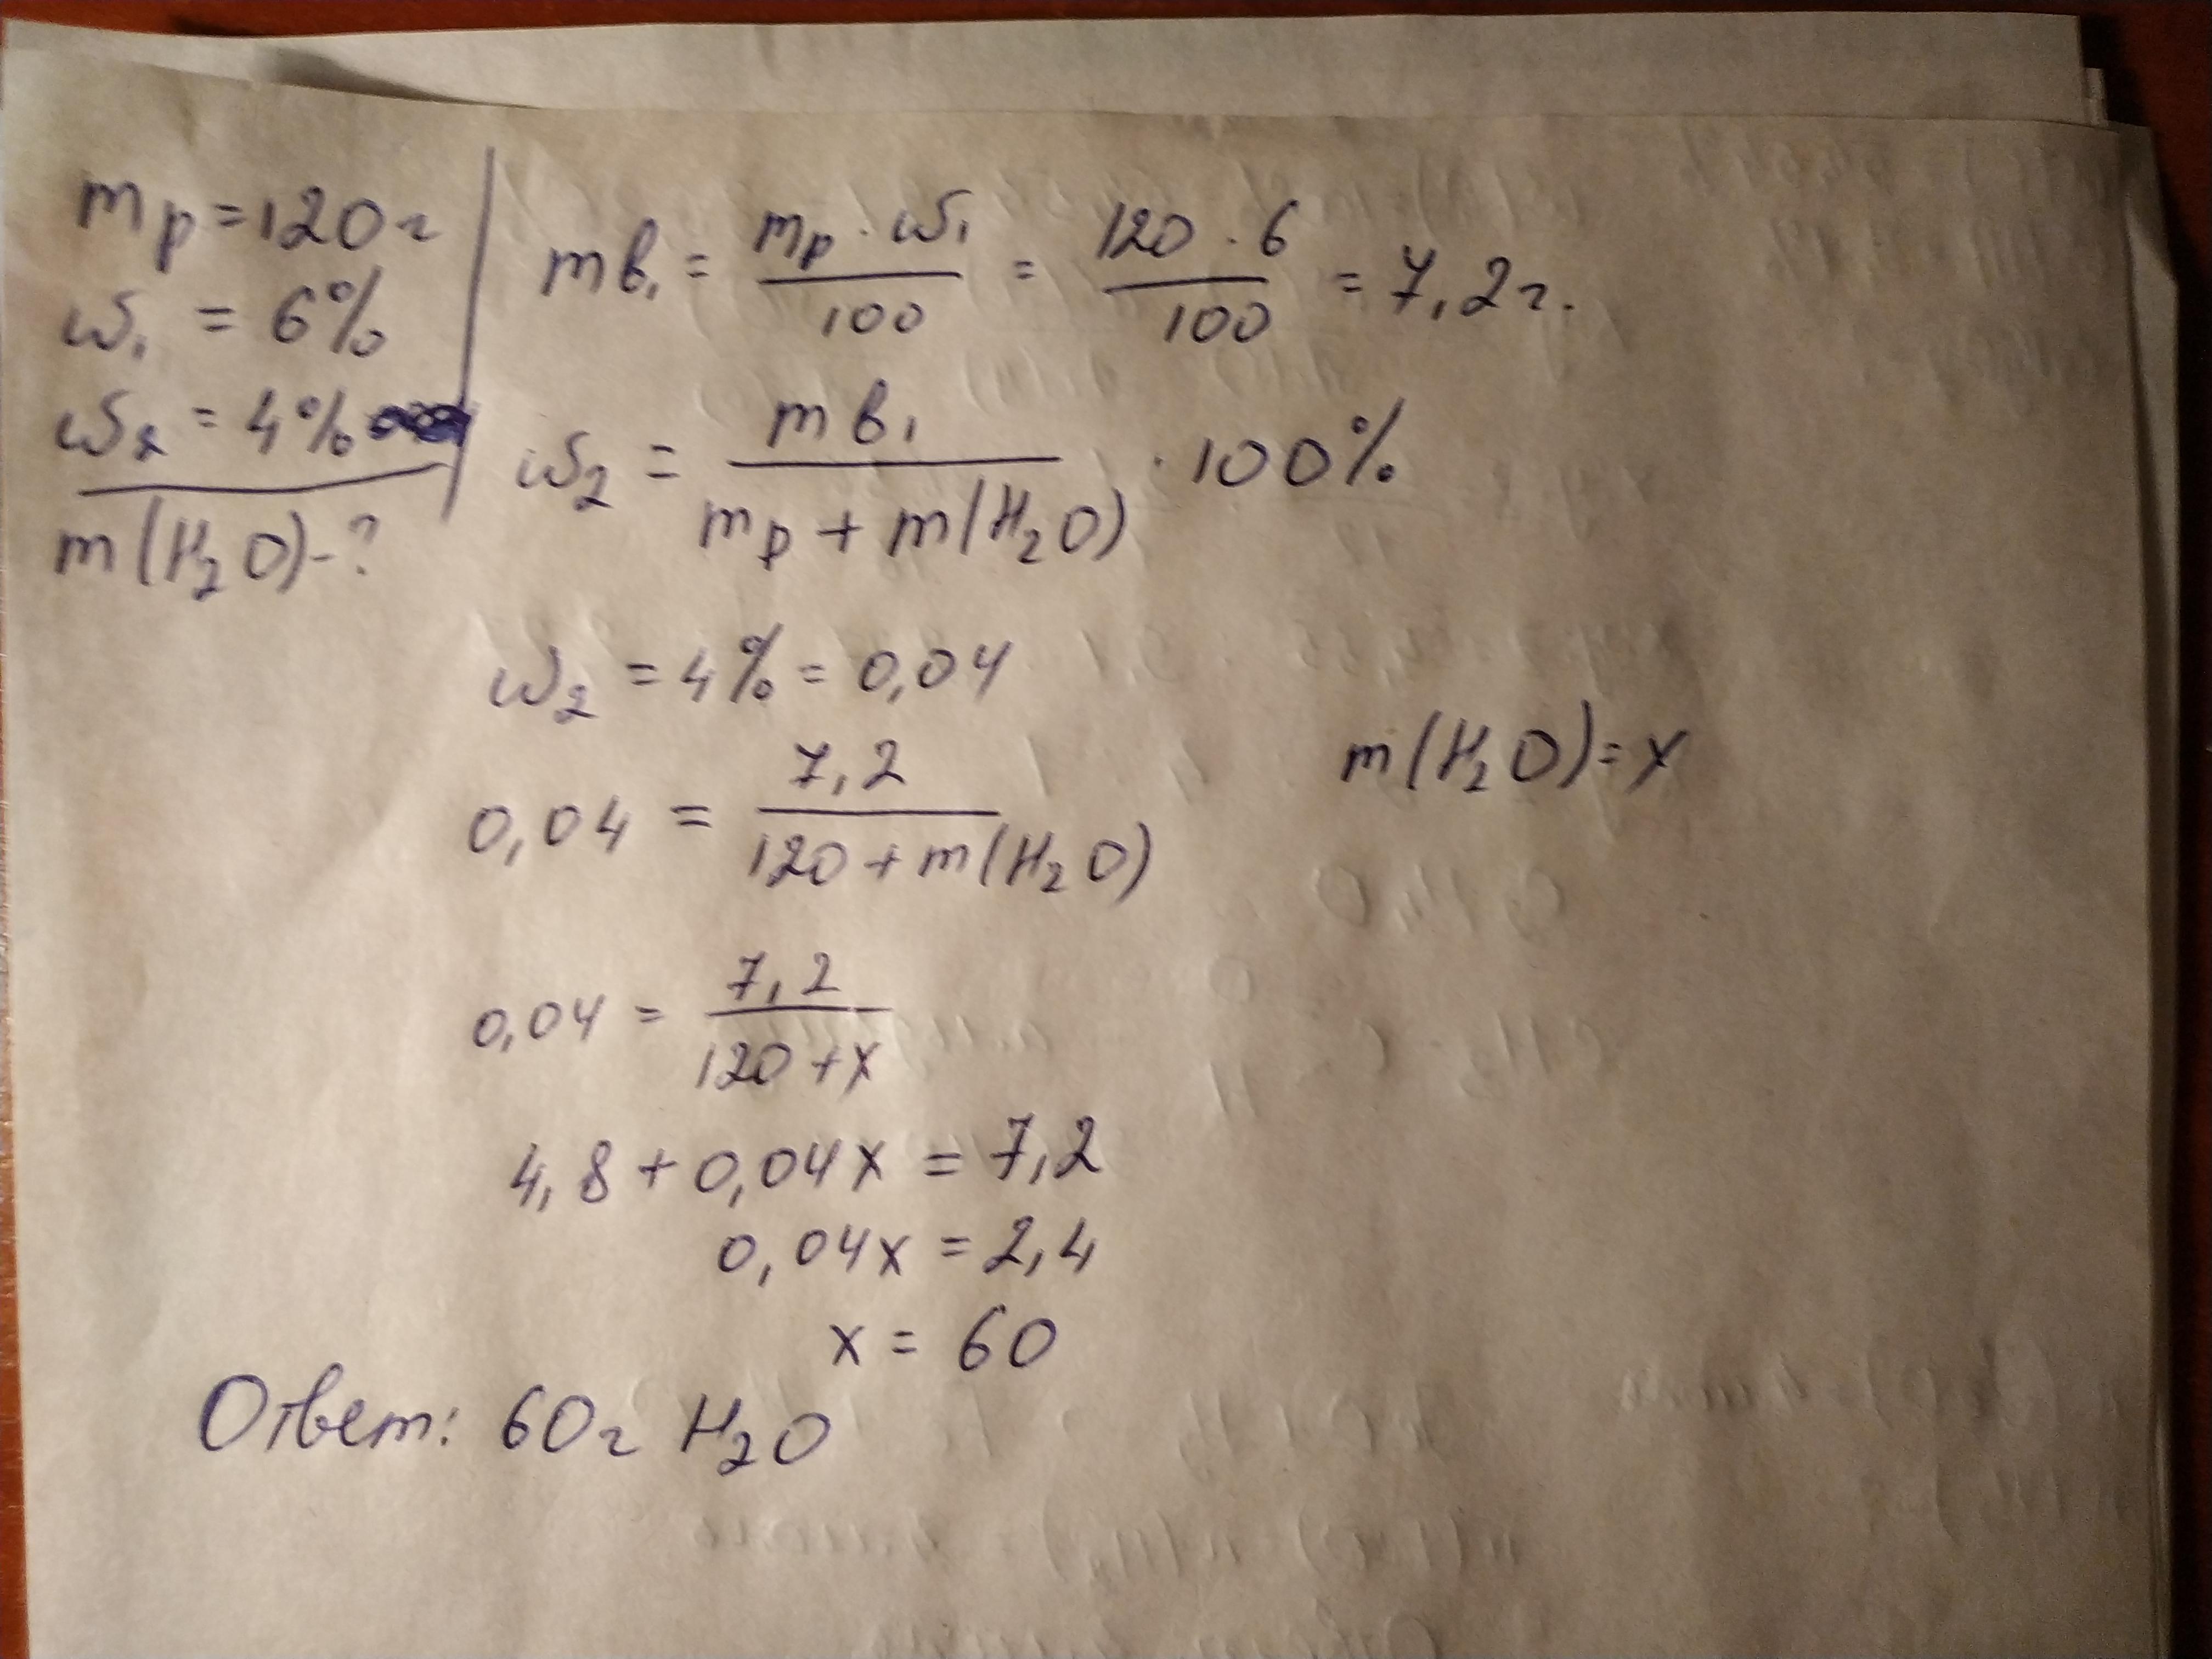 mр = 120 г
ω₁ = 6%
ω₂ = 4%
m(H₂O) - ?
mв₁ = mр · ω₁ / 100 = 120 · 6 / 100 = 7,2 г.
ω₂ = mв₁ / mр + m(H₂O) · 100%
ω₂ = 4% = 0,04
m(H₂O) = x
0,04 = 7,2 / 120 + m(H₂O)
0,04 = 7,2 / 120 + x
4,8 + 0,04x = 7,2
0,04x = 2,4
x = 60
Ответ: 60 г H₂O